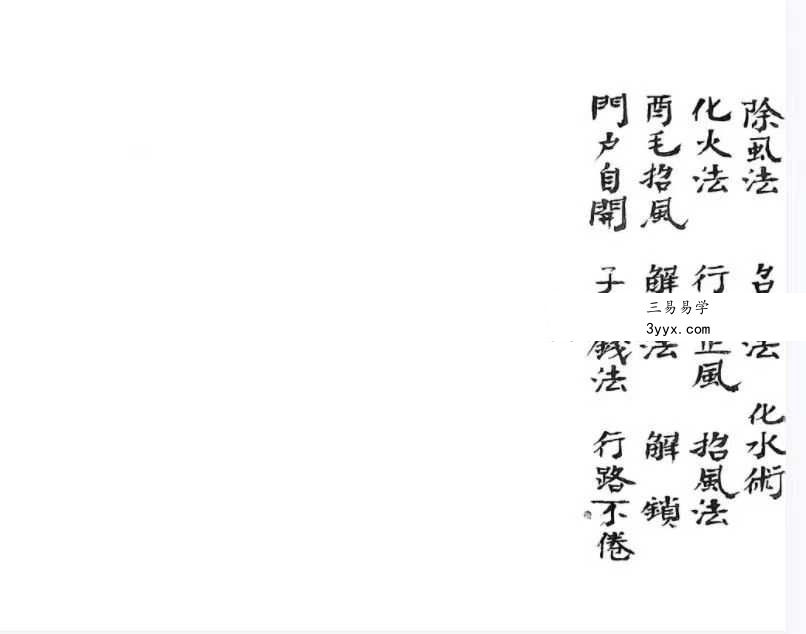 除虱法 法 化水術
化火法 行 止風 招風法
酉毛招風 解 法 解鎖
門户自開 子 錢法 行路不倦
三易易学
3yyx.com